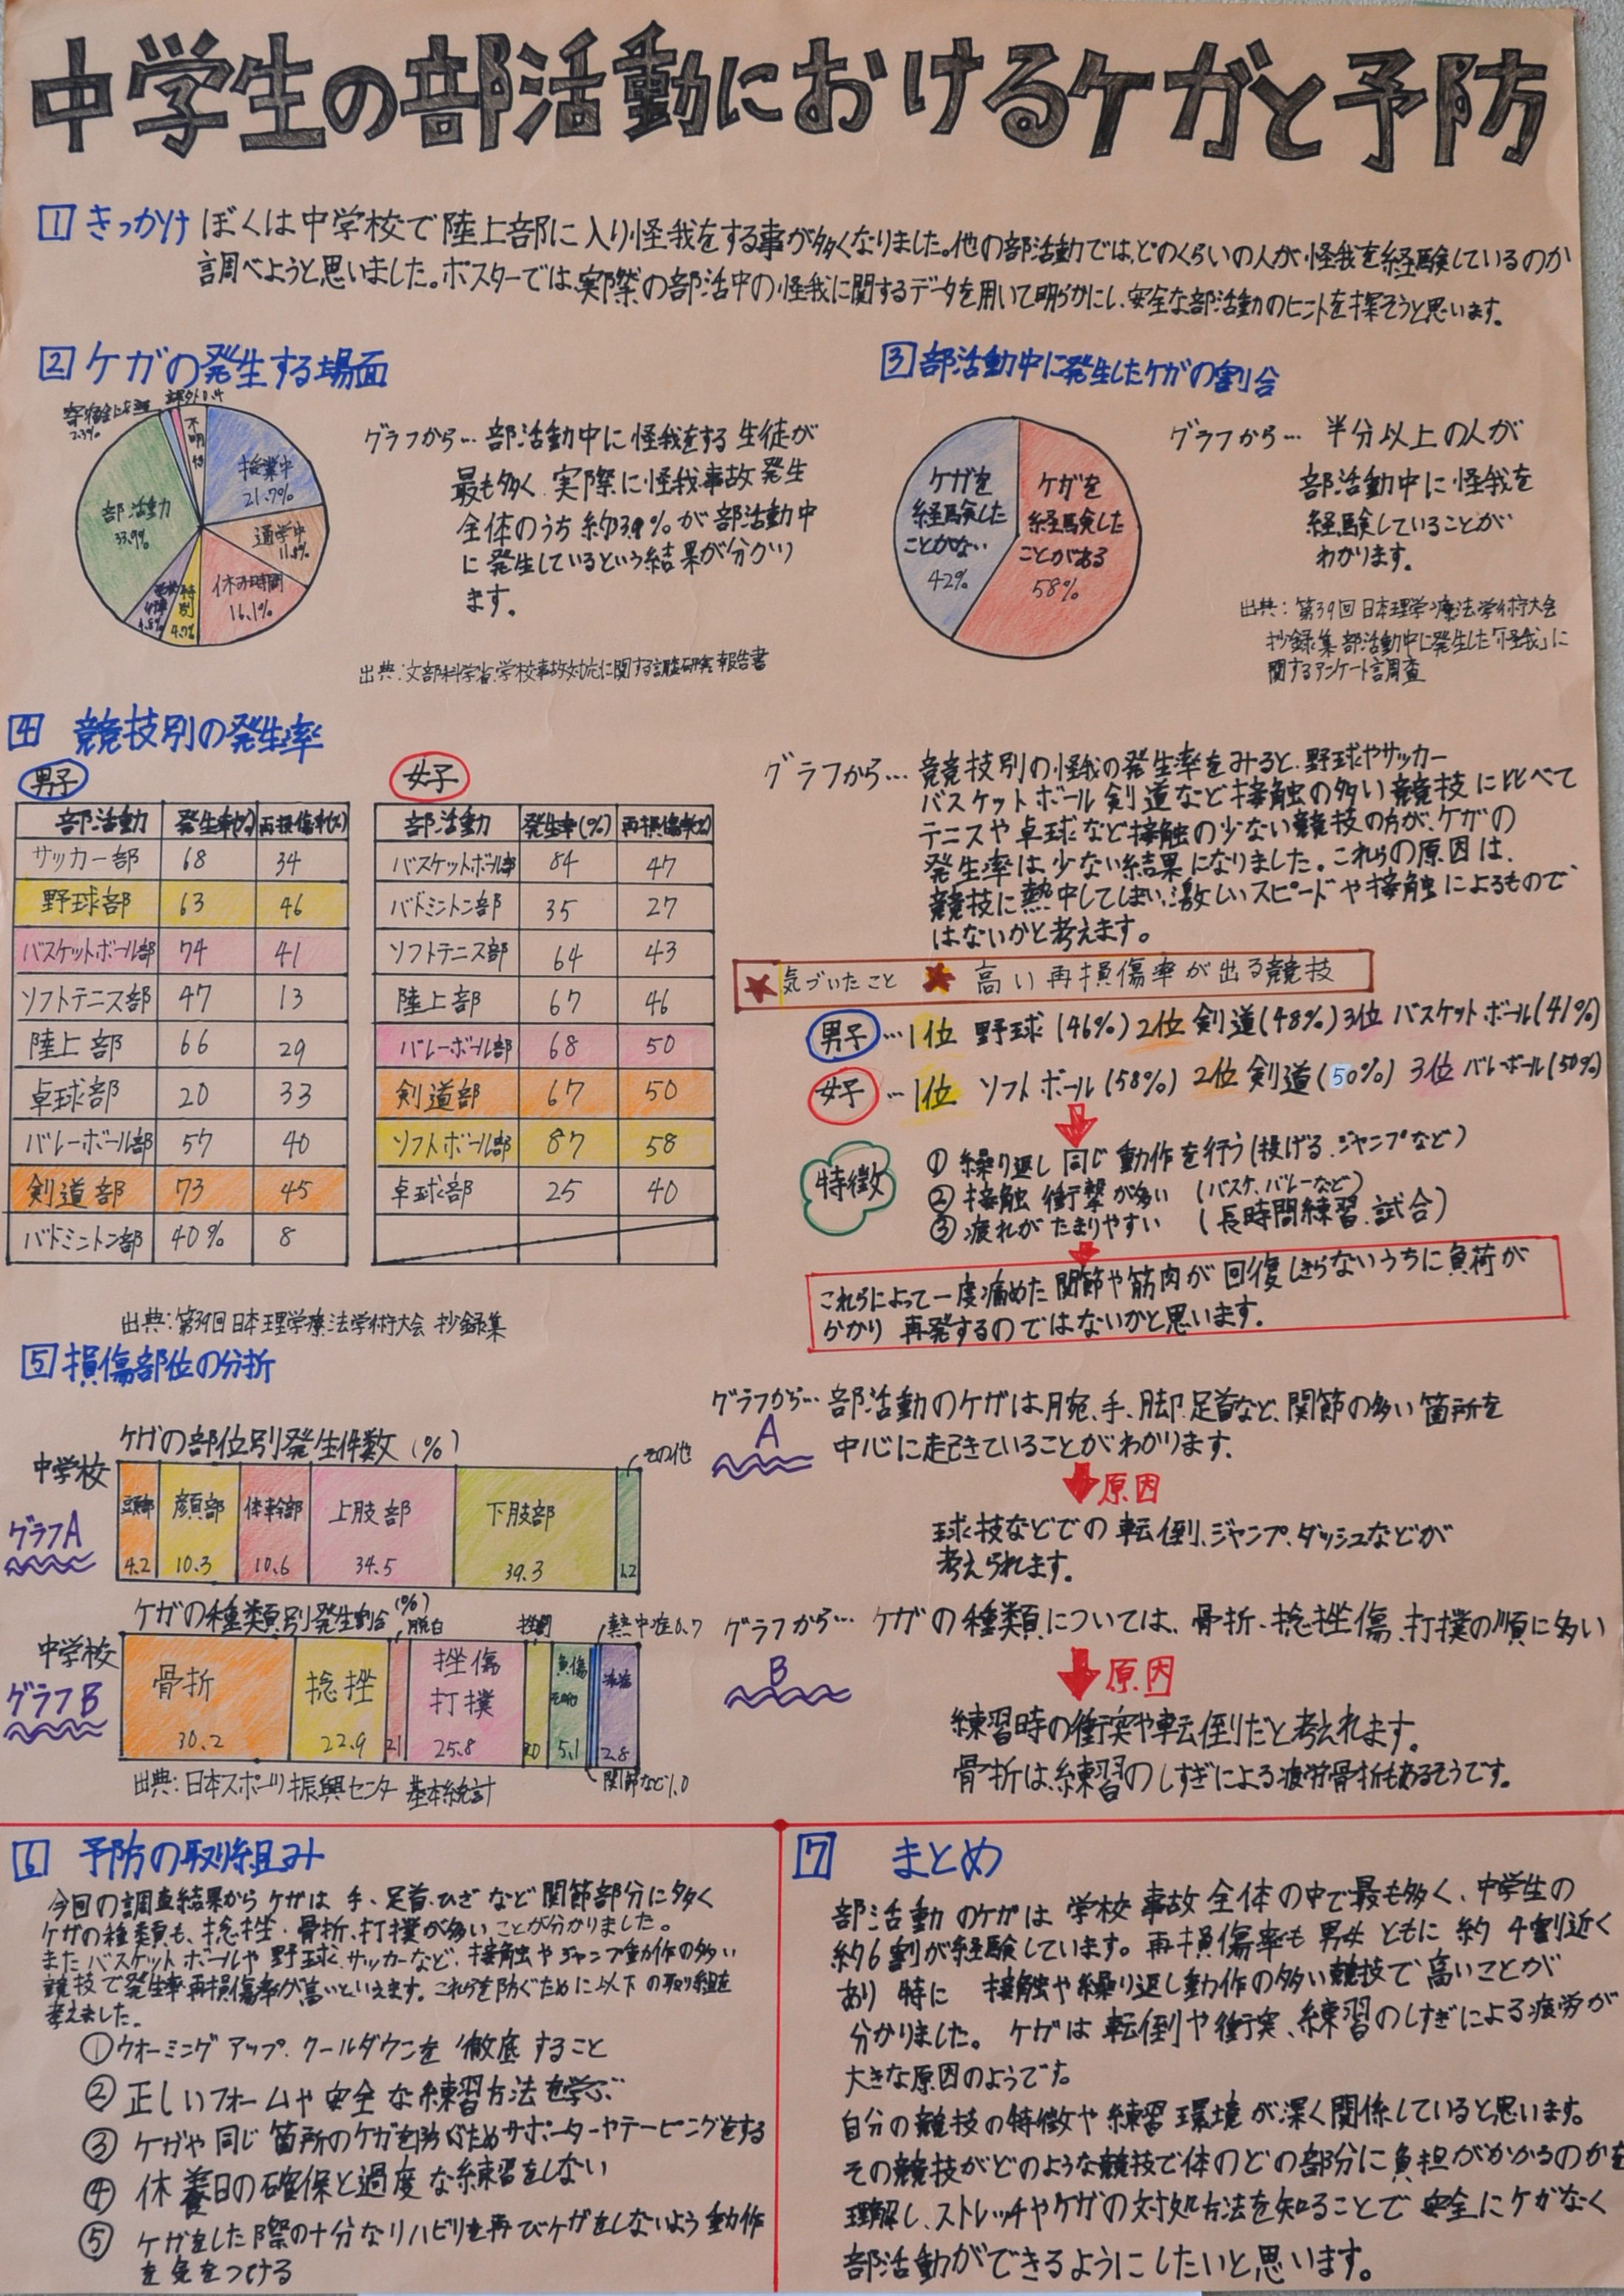 中学生の部活動におけるケガと予防
1 きっかけ ぼくは中学校で陸上部に入り怪我をする事が多くなりました。他の部活動では、どのくらいの人が怪我を経験しているのか
調べようと思いました。ポスターでは、実際の部活中の怪我に関するデータを用いて明らかにし、安全な部活動のヒントを探そうと思います。
2 ケガの発生する場面
不明
授業中
21.7%
通学中
休み時間
16.1%
特別
4.7%
部活動
33.9%
グラフから… 部活動中に怪我をする生徒が
最も多く、実際に怪我事故発生
全体のうち約39%が部活動中
に発生しているという結果が分かり
ます。
出典:文部科学省.学校事故対応に関する調査研究報告書
3 部活動中に発生したケガの割合
ケガを
経験した
ことがない
42%
ケガを
経験した
ことがある
58%
グラフから… 半分以上の人が
部活動中に怪我を
経験していることが
わかります。
出典:第39回日本理学療法学術大会
抄録集 部活動中に発生した「怪我」に
関するアンケート調査
4 競技別の発生率
男子
部活動 発生率(%) 再損傷率(%)
サッカー部 68 34
野球部 63 46
バスケットボール部 74 41
ソフトテニス部 47 13
陸上部 66 29
卓球部 20 33
バレーボール部 57 40
剣道部 73 45
バドミントン部 40% 8
女子
部活動 発生率(%) 再損傷率(%)
バスケットボール部 84 47
バドミントン部 35 27
ソフトテニス部 64 43
陸上部 67 46
バレーボール部 68 50
剣道部 67 50
ソフトボール部 87 58
卓球部 25 40
出典:第39回日本理学療法学術大会 抄録集
グラフから… 競技別の怪我の発生率をみると、野球やサッカー
バスケットボール 剣道など接触の多い競技に比べて
テニスや卓球など接触の少ない競技の方が、ケガの
発生率は少ない結果になりました。これらの原因は、
競技に熱中してしまい、激しいスピードや接触によるもので
はないかと考えます。
★気づいたこと ★ 高い再損傷率が出る競技
男子…1位 野球(46%) 2位 剣道(48%) 3位 バスケットボール(41%)
女子…1位 ソフトボール(58%) 2位 剣道(50%) 3位 バレーボール(50%)
特徴
① 繰り返し同じ動作を行う(投げる、ジャンプなど)
② 接触 衝撃が多い (バスケ、バレーなど)
③ 疲れがたまりやすい (長時間練習、試合)
これらによって一度痛めた関節や筋肉が回復しきらないうちに負荷が
かかり 再発するのではないかと思います。
5 損傷部位の分折
ケガの部位別発生件数(%)
中学校
グラフA
頭部 4.2
顔部 10.3
体幹部 10.6
上肢部 34.5
下肢部 39.3
その他 1.2
ケガの種類別発生割合(%)
中学校
グラフB
骨折 30.2
捻挫 22.9
脱臼 2.1
挫傷 打撲 25.8
5.1
熱中症0.7
2.8
関節など1.0
出典:日本スポーツ振興センター 基本統計
グラフから… 部活動のケガは腕、手、脚、足首など、関節の多い箇所を
A
中心に起きていることがわかります。
原因
球技などでの転倒、ジャンプ、ダッシュなどが
考えられます。
グラフから… ケガの種類については、骨折、捻挫傷、打撲の順に多い
B
原因
練習時の衝突や転倒だと考えれます。
骨折は、練習のしすぎによる疲労骨折もあるそうです。
6 予防の取り組み
今回の調査結果からケガは 手、足首、ひざなど関節部分に多く
ケガの種類も、捻挫、骨折、打撲が多いことが分かりました。
またバスケットボールや野球、サッカーなど、接触やジャンプ動作の多い
競技で発生率、再損傷率が高いといえます。これらを防ぐために以下の取り組を
考えました。
①ウォーミングアップ、クールダウンを徹底すること
② 正しいフォームや安全な練習方法を学ぶ
③ ケガや同じ箇所のケガを防ぐためサポーターやテーピングをする
④ 休養日の確保と過度な練習をしない
⑤ ケガをした際の十分なリハビリを再びケガをしないよう動作
を気をつける
7 まとめ
部活動のケガは学校事故全体の中で最も多く、中学生の
約6割が経験しています。再損傷率も男女ともに約4割近く
あり 特に 接触や繰り返し動作の多い競技で高いことが
分かりました。 ケガは転倒や衝突、練習のしすぎによる疲労が
大きな原因のようです。
自分の競技の特徴や練習環境が深く関係していると思います。
その競技がどのような競技で体のどの部分に負担がかかるのかを
理解し、ストレッチやケガの対処方法を知ることで 安全にケガなく
部活動ができるようにしたいと思います。